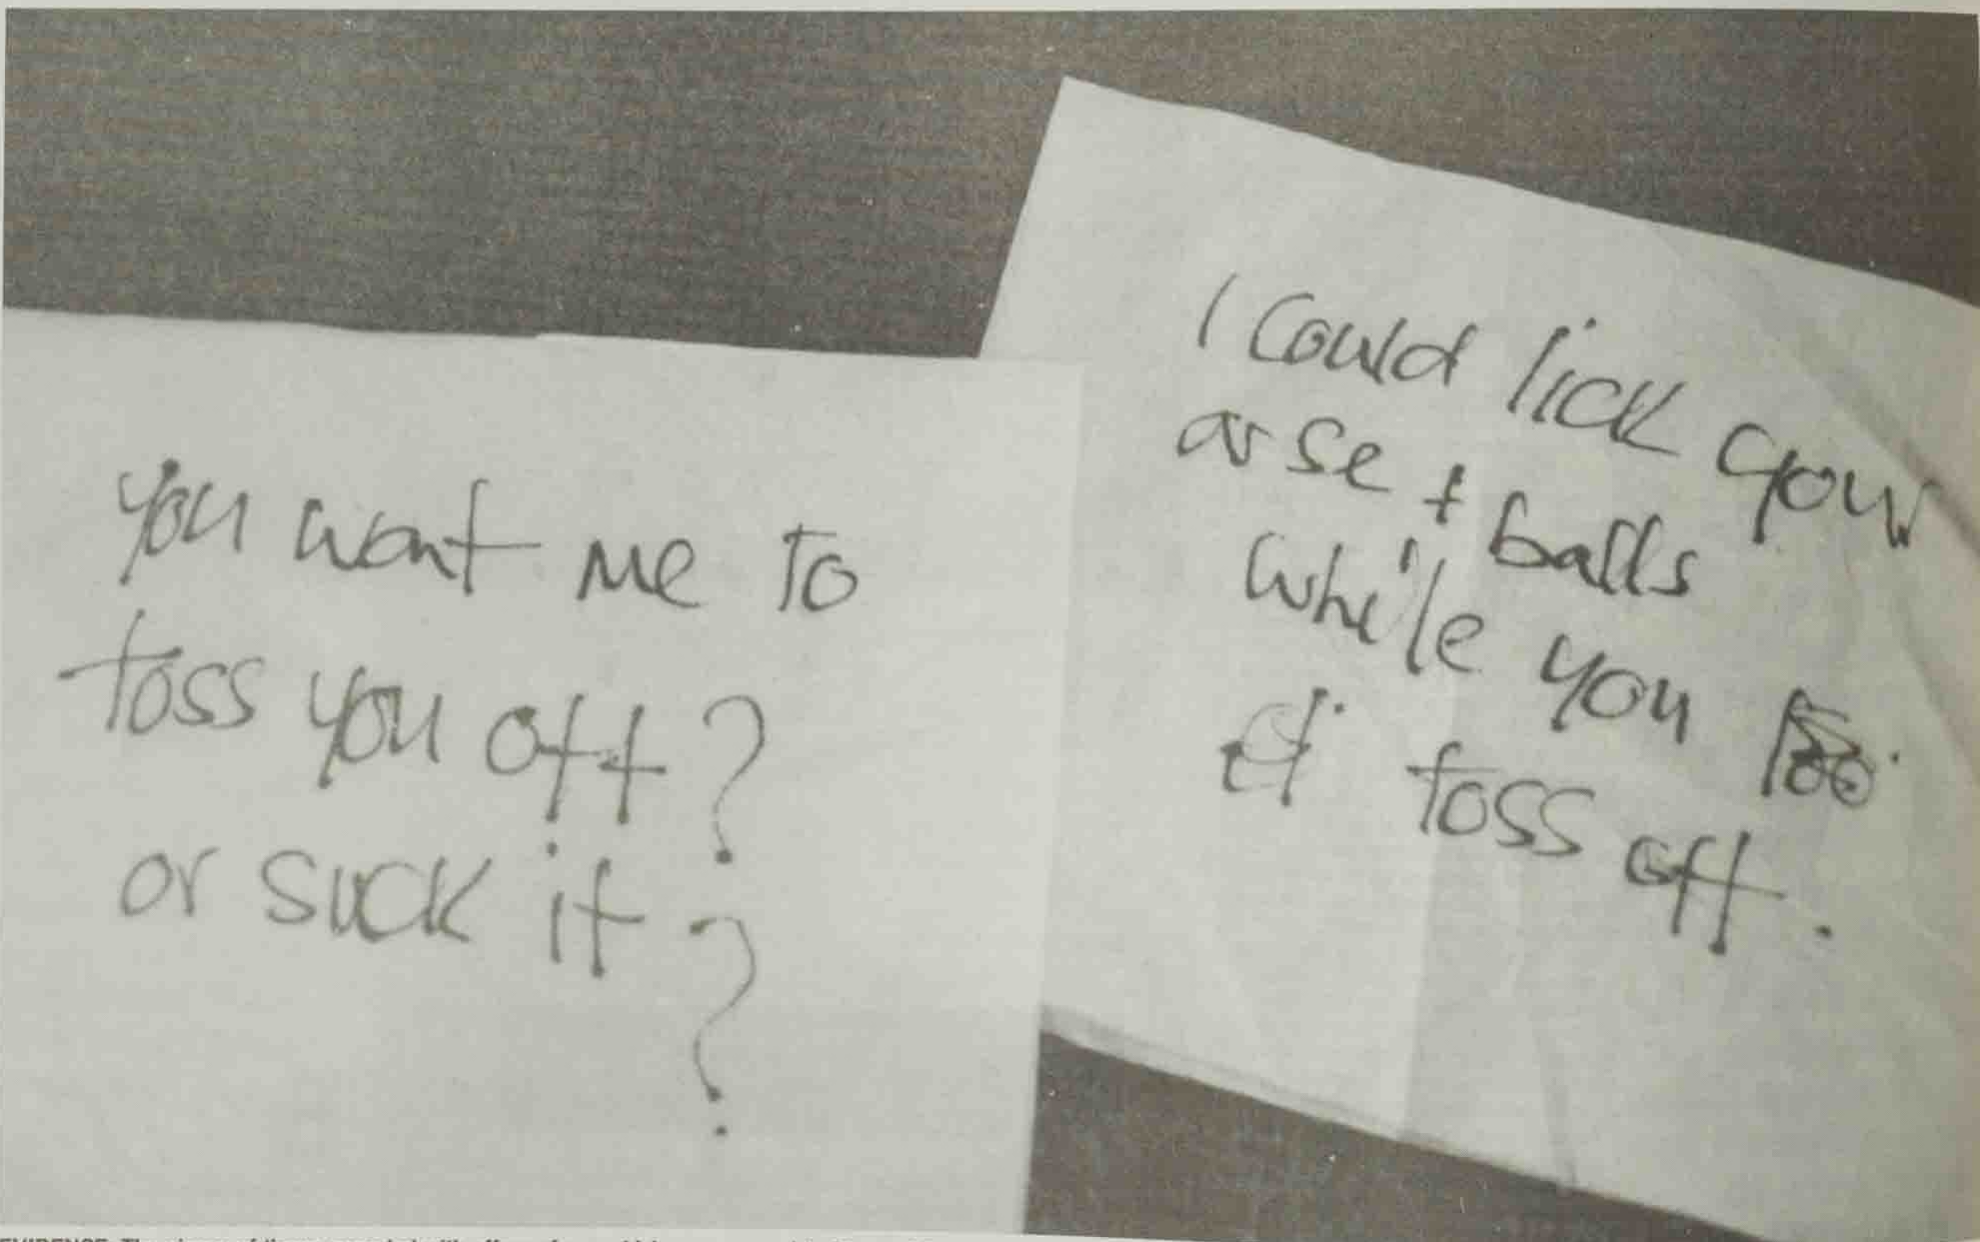 you want me to
toss you off?
or suck it?
I could lick your
arse + balls
while you
toss off.
EVIDENCE: